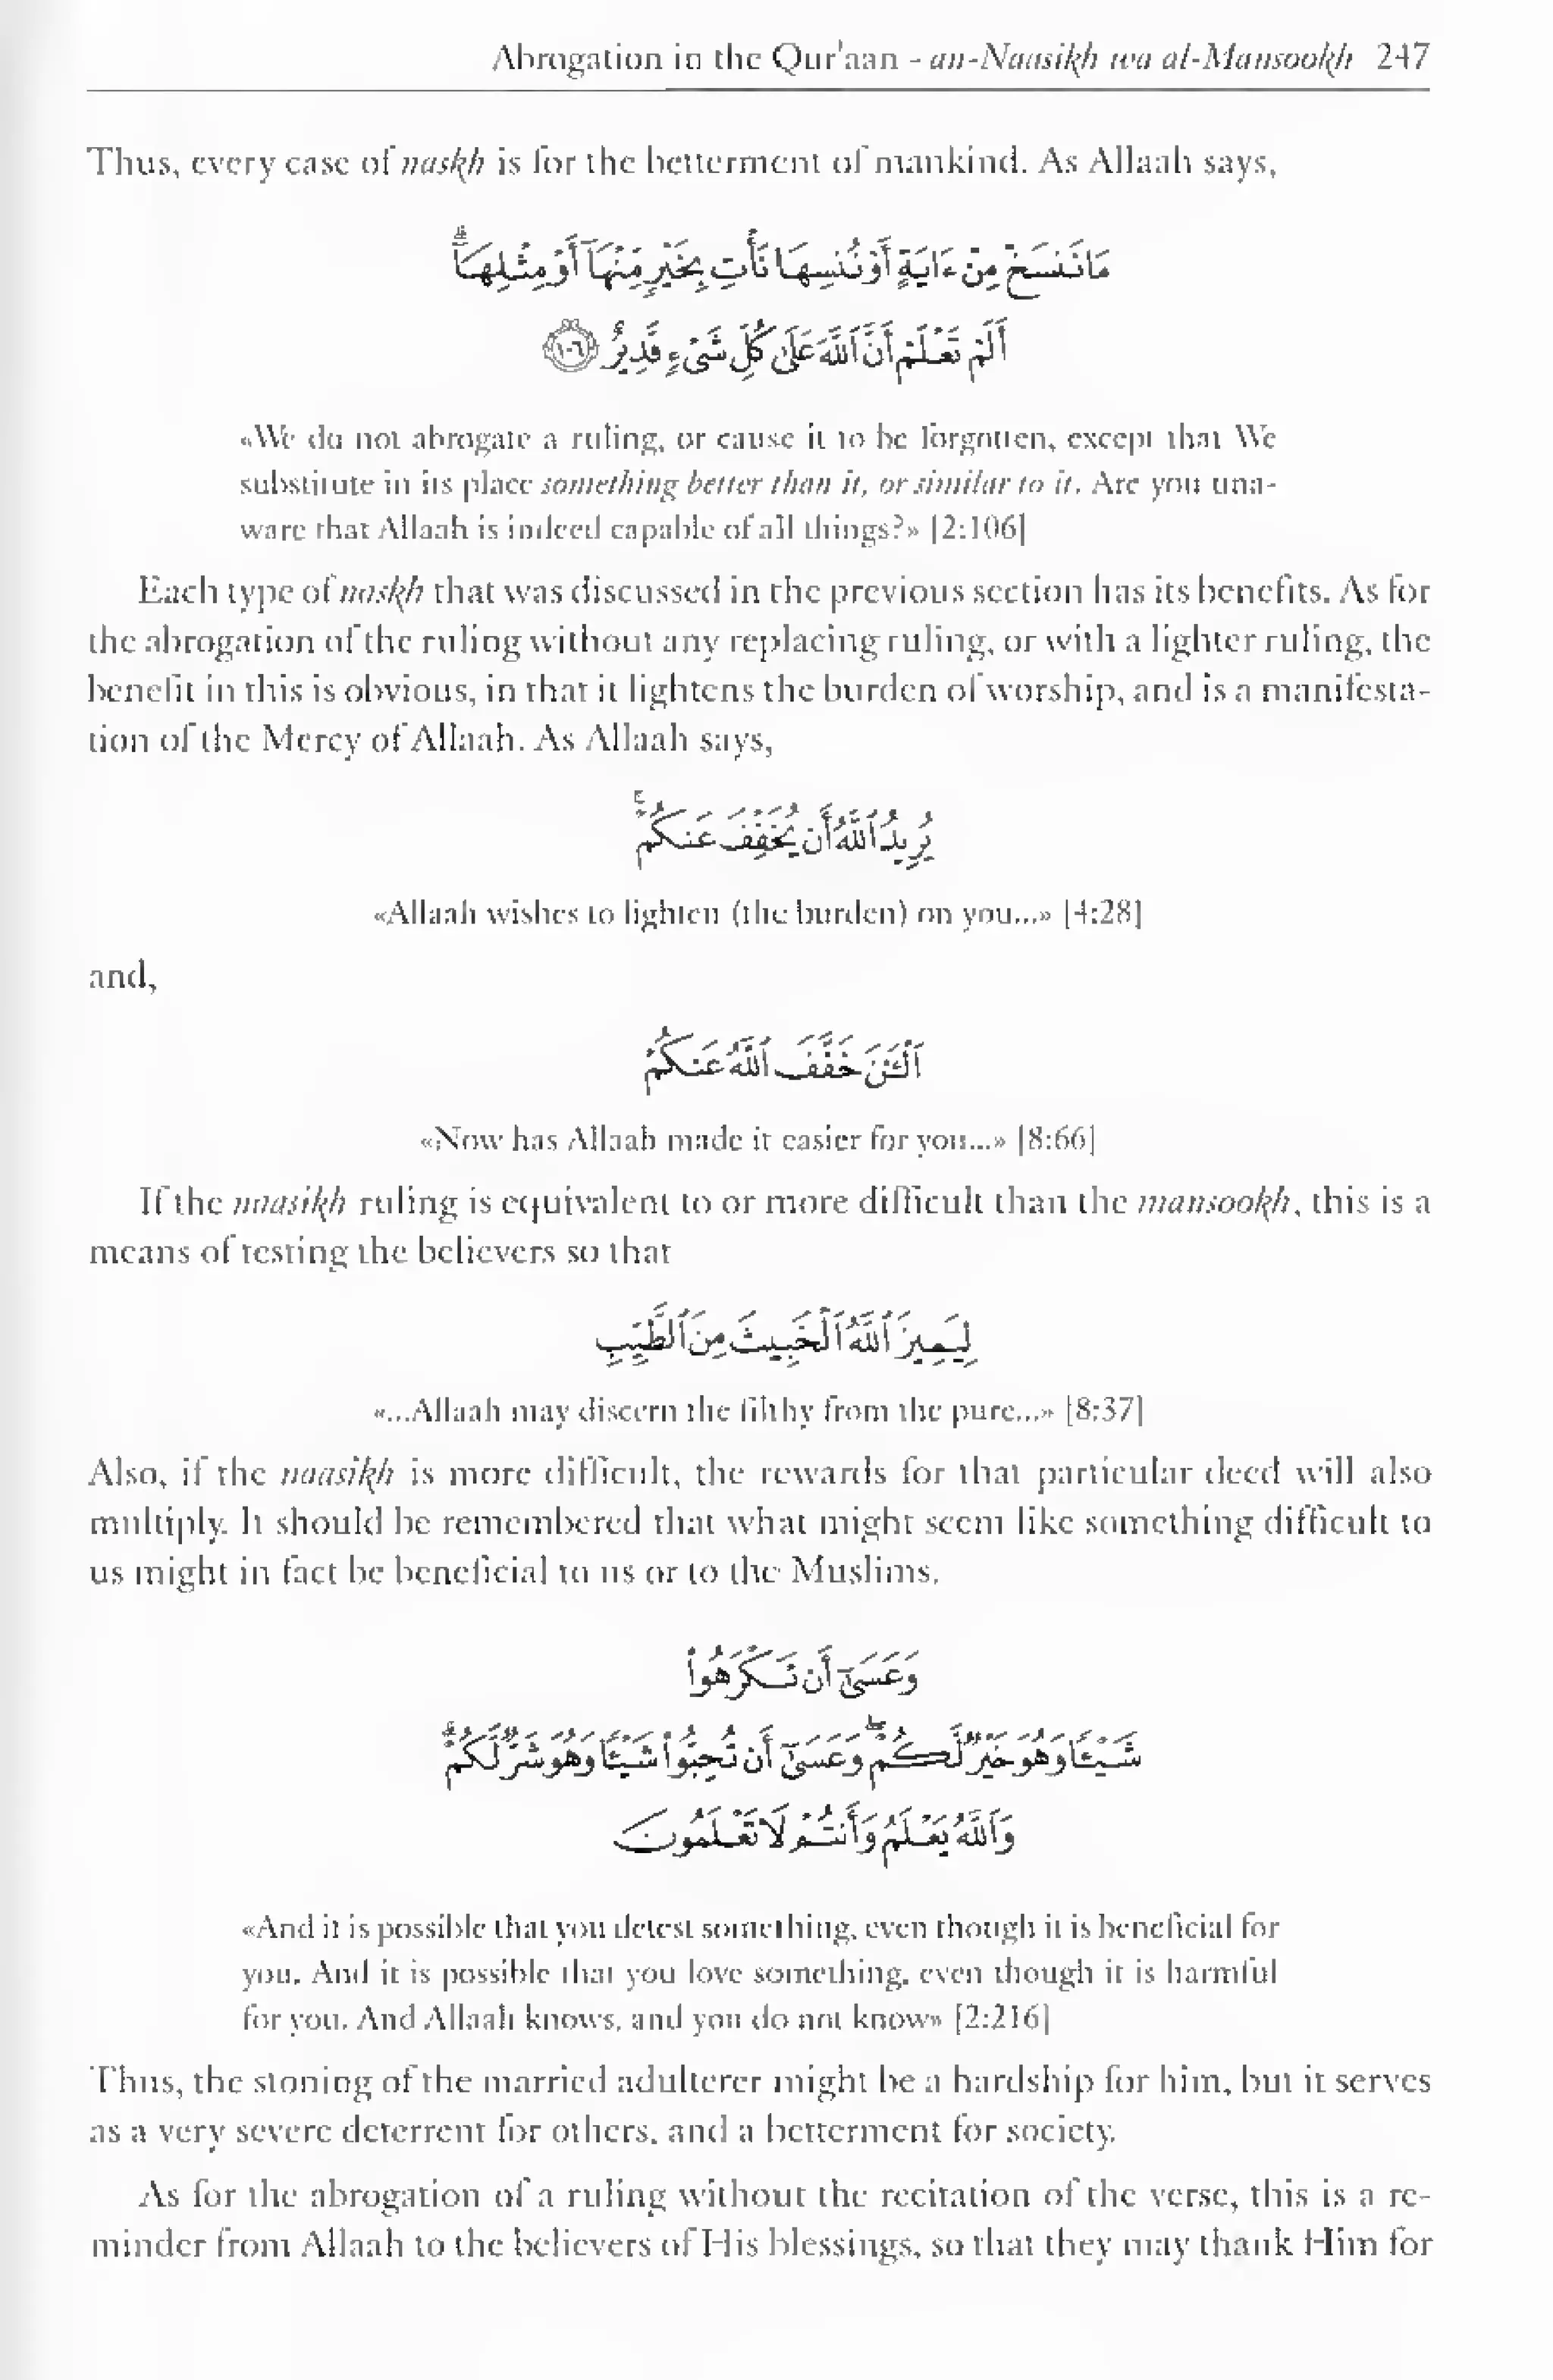 Abrogation in the Qur'aan - an-Naasikh wa al-Mansookh 247
Thus, every case of naskh is for the betterment of mankind. As Allaah says,
مَا نَنسَخْ مِنْ ءَايَةٍ أَوْ نُنسِهَا نَأْتِ بِخَيْرٍ مِّنْهَآ أَوْ مِثْلِهَآ ۗ
أَلَمْ تَعْلَمْ أَنَّ ٱللَّهَ عَلَىٰ كُلِّ شَىْءٍ قَدِيرٌ ١٠٦
«We do not abrogate a ruling, or cause it to be forgotten, except that We
substitute in its place something better than it, or similar to it. Are you una-
ware that Allaah is indeed capable of all things?» [2:106]
Each type of naskh that was discussed in the previous section has its benefits. As for
the abrogation of the ruling without any replacing ruling, or with a lighter ruling, the
benefit in this is obvious, in that it lightens the burden of worship, and is a manifesta-
tion of the Mercy of Allaah. As Allaah says,
يُرِيدُ ٱللَّهُ أَن يُخَفِّفَ عَنكُمْ ۚ
«Allaah wishes to lighten (the burden) on you...» [4:28]
and,
ٱلْـَٰٔنَ خَفَّفَ ٱللَّهُ عَنكُمْ
«Now has Allaah made it easier for you...» [8:66]
If the naasikh ruling is equivalent to or more difficult than the mansookh, this is a
means of testing the believers so that
لِيَمِيزَ ٱللَّهُ ٱلْخَبِيثَ مِنَ ٱلطَّيِّبِ
«...Allaah may discern the filthy from the pure...» [8:37]
Also, if the naasikh is more difficult, the rewards for that particular deed will also
multiply. It should be remembered that what might seem like something difficult to
us might in fact be beneficial to us or to the Muslims.
وَعَسَىٰٓ أَن تَكْرَهُوا۟
شَيْـًٔا وَهُوَ خَيْرٌ لَّكُمْ ۖ وَعَسَىٰٓ أَن تُحِبُّوا۟ شَيْـًٔا وَهُوَ شَرٌّ لَّكُمْ ۗ
وَٱللَّهُ يَعْلَمُ وَأَنتُمْ لَا تَعْلَمُونَ
«And it is possible that you detest something, even though it is beneficial for
you. And it is possible that you love something, even though it is harmful
for you. And Allaah knows, and you do not know» [2:216]
Thus, the stoning of the married adulterer might be a hardship for him, but it serves
as a very severe deterrent for others, and a betterment for society.
As for the abrogation of a ruling without the recitation of the verse, this is a re-
minder from Allaah to the believers of His blessings, so that they may thank Him for